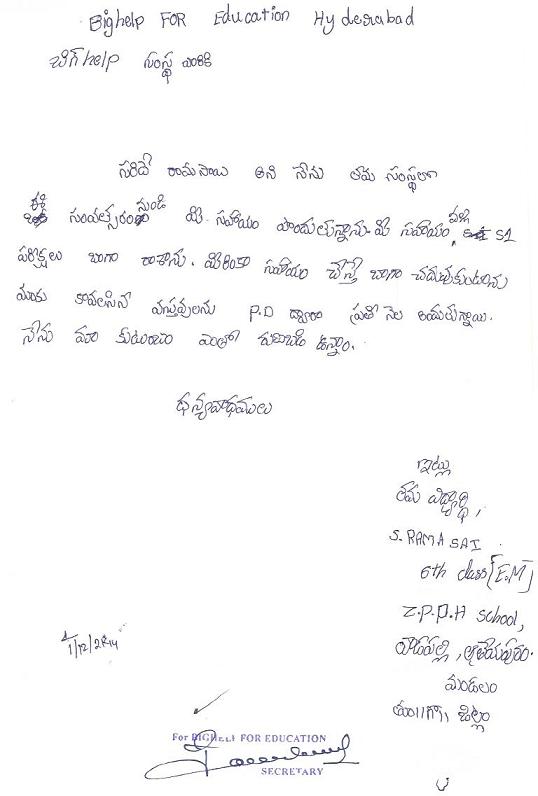 Bighelp FOR Education Hyderabad
బిగ్ help సంస్థ వారికి
సరిదే రామసాయి అని నేను తమ సంస్థలో
సంవత్సరం నుండి మీ సహాయం పొందుతున్నాను. మీ సహాయం వల్ల S1
పరీక్షలు బాగా రాశాను. మీరింకా సహాయం చేస్తే బాగా చదువుకుంటాను
మాకు కావలసిన వస్తువులను P.D ద్వారా ప్రతి నెల
నేను మా కుటుంబం ఎంతో ఉన్నాం.
ధన్యవాధములు
ఇట్లు
తమ విద్యార్థి,
S. RAMA SAI
6th class [E.M]
Z.P.P.H School,
వాడపల్లి, ఆత్రేయపురం.
మండలం
తూ||గో, జిల్లా
1/12/2014
For BIGHELP FOR EDUCATION
SECRETARY